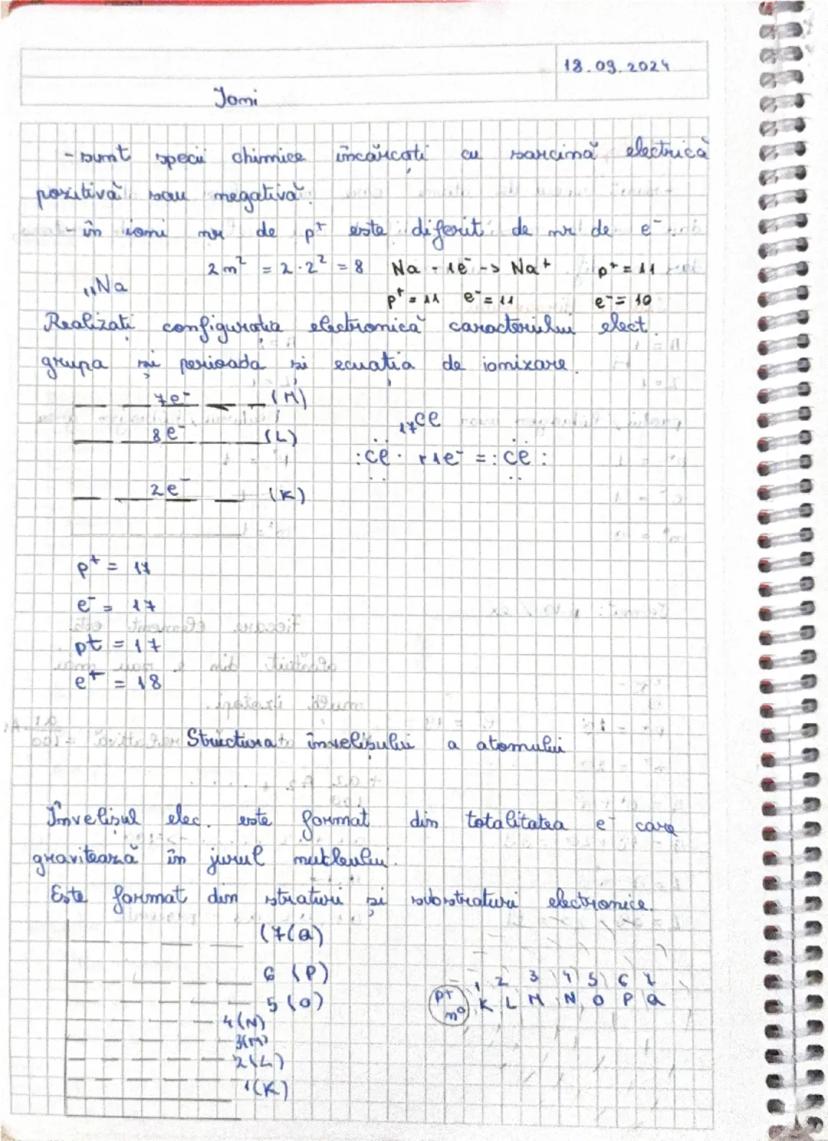 18.09.2024
Ioni
- sunt specii chimice încărcați cu sarcină electrică
pozitivă sau negativă.
- în ioni nr de p⁺ este diferit de nr de e⁻.
2n² = 2·2² = 8 Na - 1e⁻ -> Na⁺ p⁺ = 11
₁₁Na p⁺ = 11 e⁻ = 11 e⁻ = 10
Realizați configurația electronică caracterului elect.
grupa și perioada și ecuația de ionizare.
7e⁻ (M)
₁₇Cl
8e⁻ (L)
:Cl· +1e⁻ = :Cl:
2e⁻ (K)
p⁺ = 17
e⁻ = 17
p⁺ = 17
e⁺ = 18
Structura învelișului a atomului
Învelișul elec. este format din totalitatea e⁻ care
gravitează în jurul nucleului.
Este format din straturi și substraturi electronice.
(7(Q)
6 (P)
1 2 3 4 5 6 7
5 (O)
p⁺ n⁰ K L M N O P Q
4(N)
3(M)
2(L)
1(K)